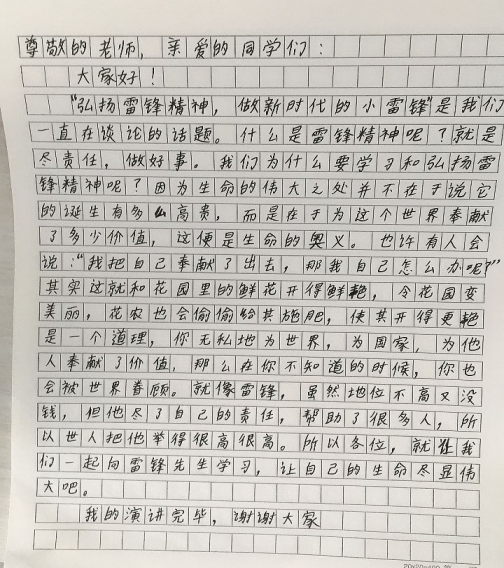 尊敬的老师，亲爱的同学们：
大家好！
"弘扬雷锋精神，做新时代的小雷锋"是我们
一直在谈论的话题。什么是雷锋精神呢？就是
尽责任，做好事。我们为什么要学习和弘扬雷
锋精神呢？因为生命的伟大之处并不在于说它
的诞生有多么高贵，而是在于为这个世界奉献
了多少价值，这便是生命的奥义。也许有人会
说："我把自己奉献了出去，那我自己怎么办呢？"
其实这就和花园里的鲜花开得鲜艳，令花园变
美丽，花农也会偷偷给其施肥，使其开得更艳
是一个道理，你无私地为世界，为国家，为他
人奉献了价值，那么在你不知道的时候，你也
会被世界眷顾。就像雷锋，虽然地位不高又没
钱，但他尽了自己的责任，帮助了很多人，所
以世人把他举得很高很高。所以各位，就让我
们一起向雷锋先生学习，让自己的生命尽显伟
大吧。
我的演讲完毕，谢谢大家